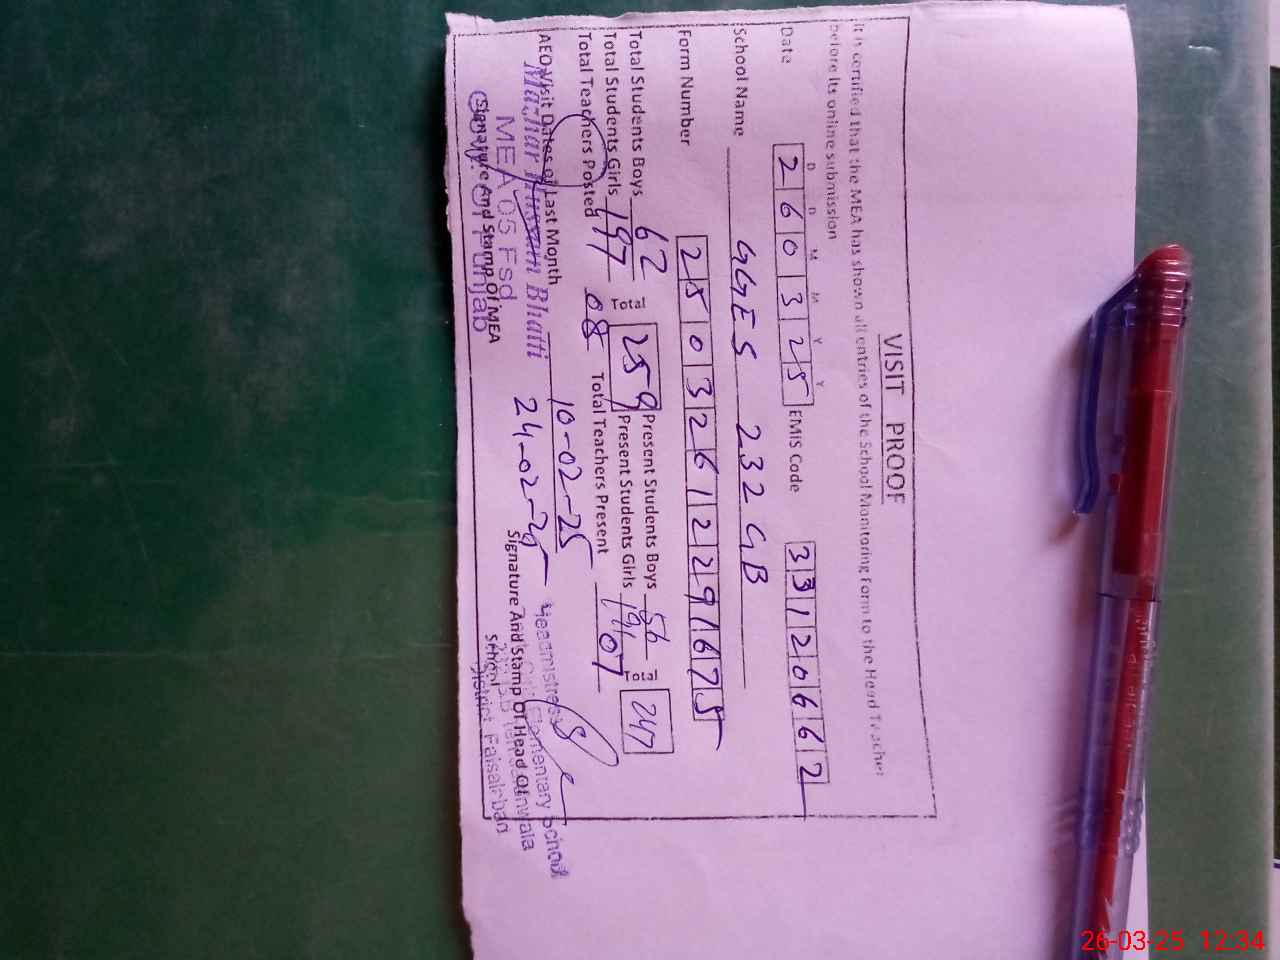 VISIT PROOF
It is certified that the MEA has shown all entries of the School Monitoring Form to the Head Teacher
before its online submission
D D M M Y Y
Date 260325 EMIS Code 33120662
School Name GGES 232 GB
Form Number 25032612291675
Total Students Boys 62 Total 259 Present Students Boys 56 Total 247
Total Students Girls 197 Present Students Girls 191
Total Teachers Posted 08 Total Teachers Present 07
AEO Visit Dates of Last Month 10-02-25
24-02-25
Mazhar Hussain Bhatti
MEA 05 Fsd
Govt. Of Punjab
Signature And Stamp Of MEA
Headmistress
Elementary School
Signature And Stamp Of Head Of
School
District Faisalabad
26-03-25 12:34